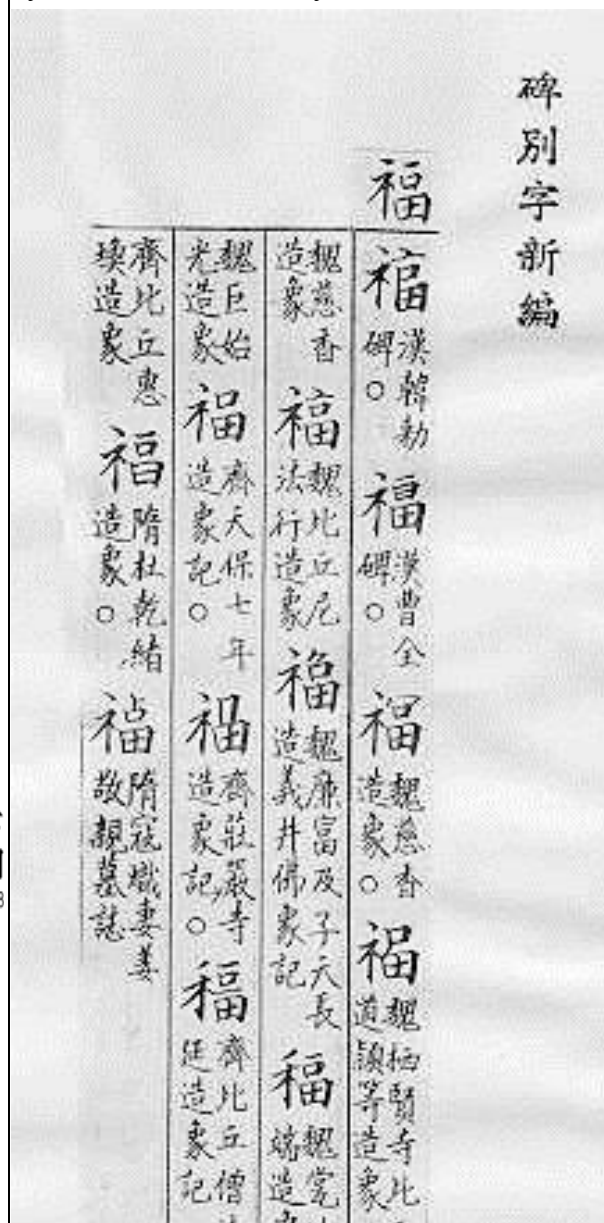 碑別字新編
福
福漢韓勑碑○福漢曹全碑○福魏慈香造象○福魏栖賢寺比道穎等造象
魏慈香造象福魏比丘尼法行造象福魏廉富及子天長造義井佛象記福魏党端造
魏巨始光造象福齊天保七年造象記○福齊莊嚴寺造象記○福齊比丘僧造象記
齊比丘惠瑍造象福隋杜乾緒造象○福隋寇熾妻姜敬親墓誌